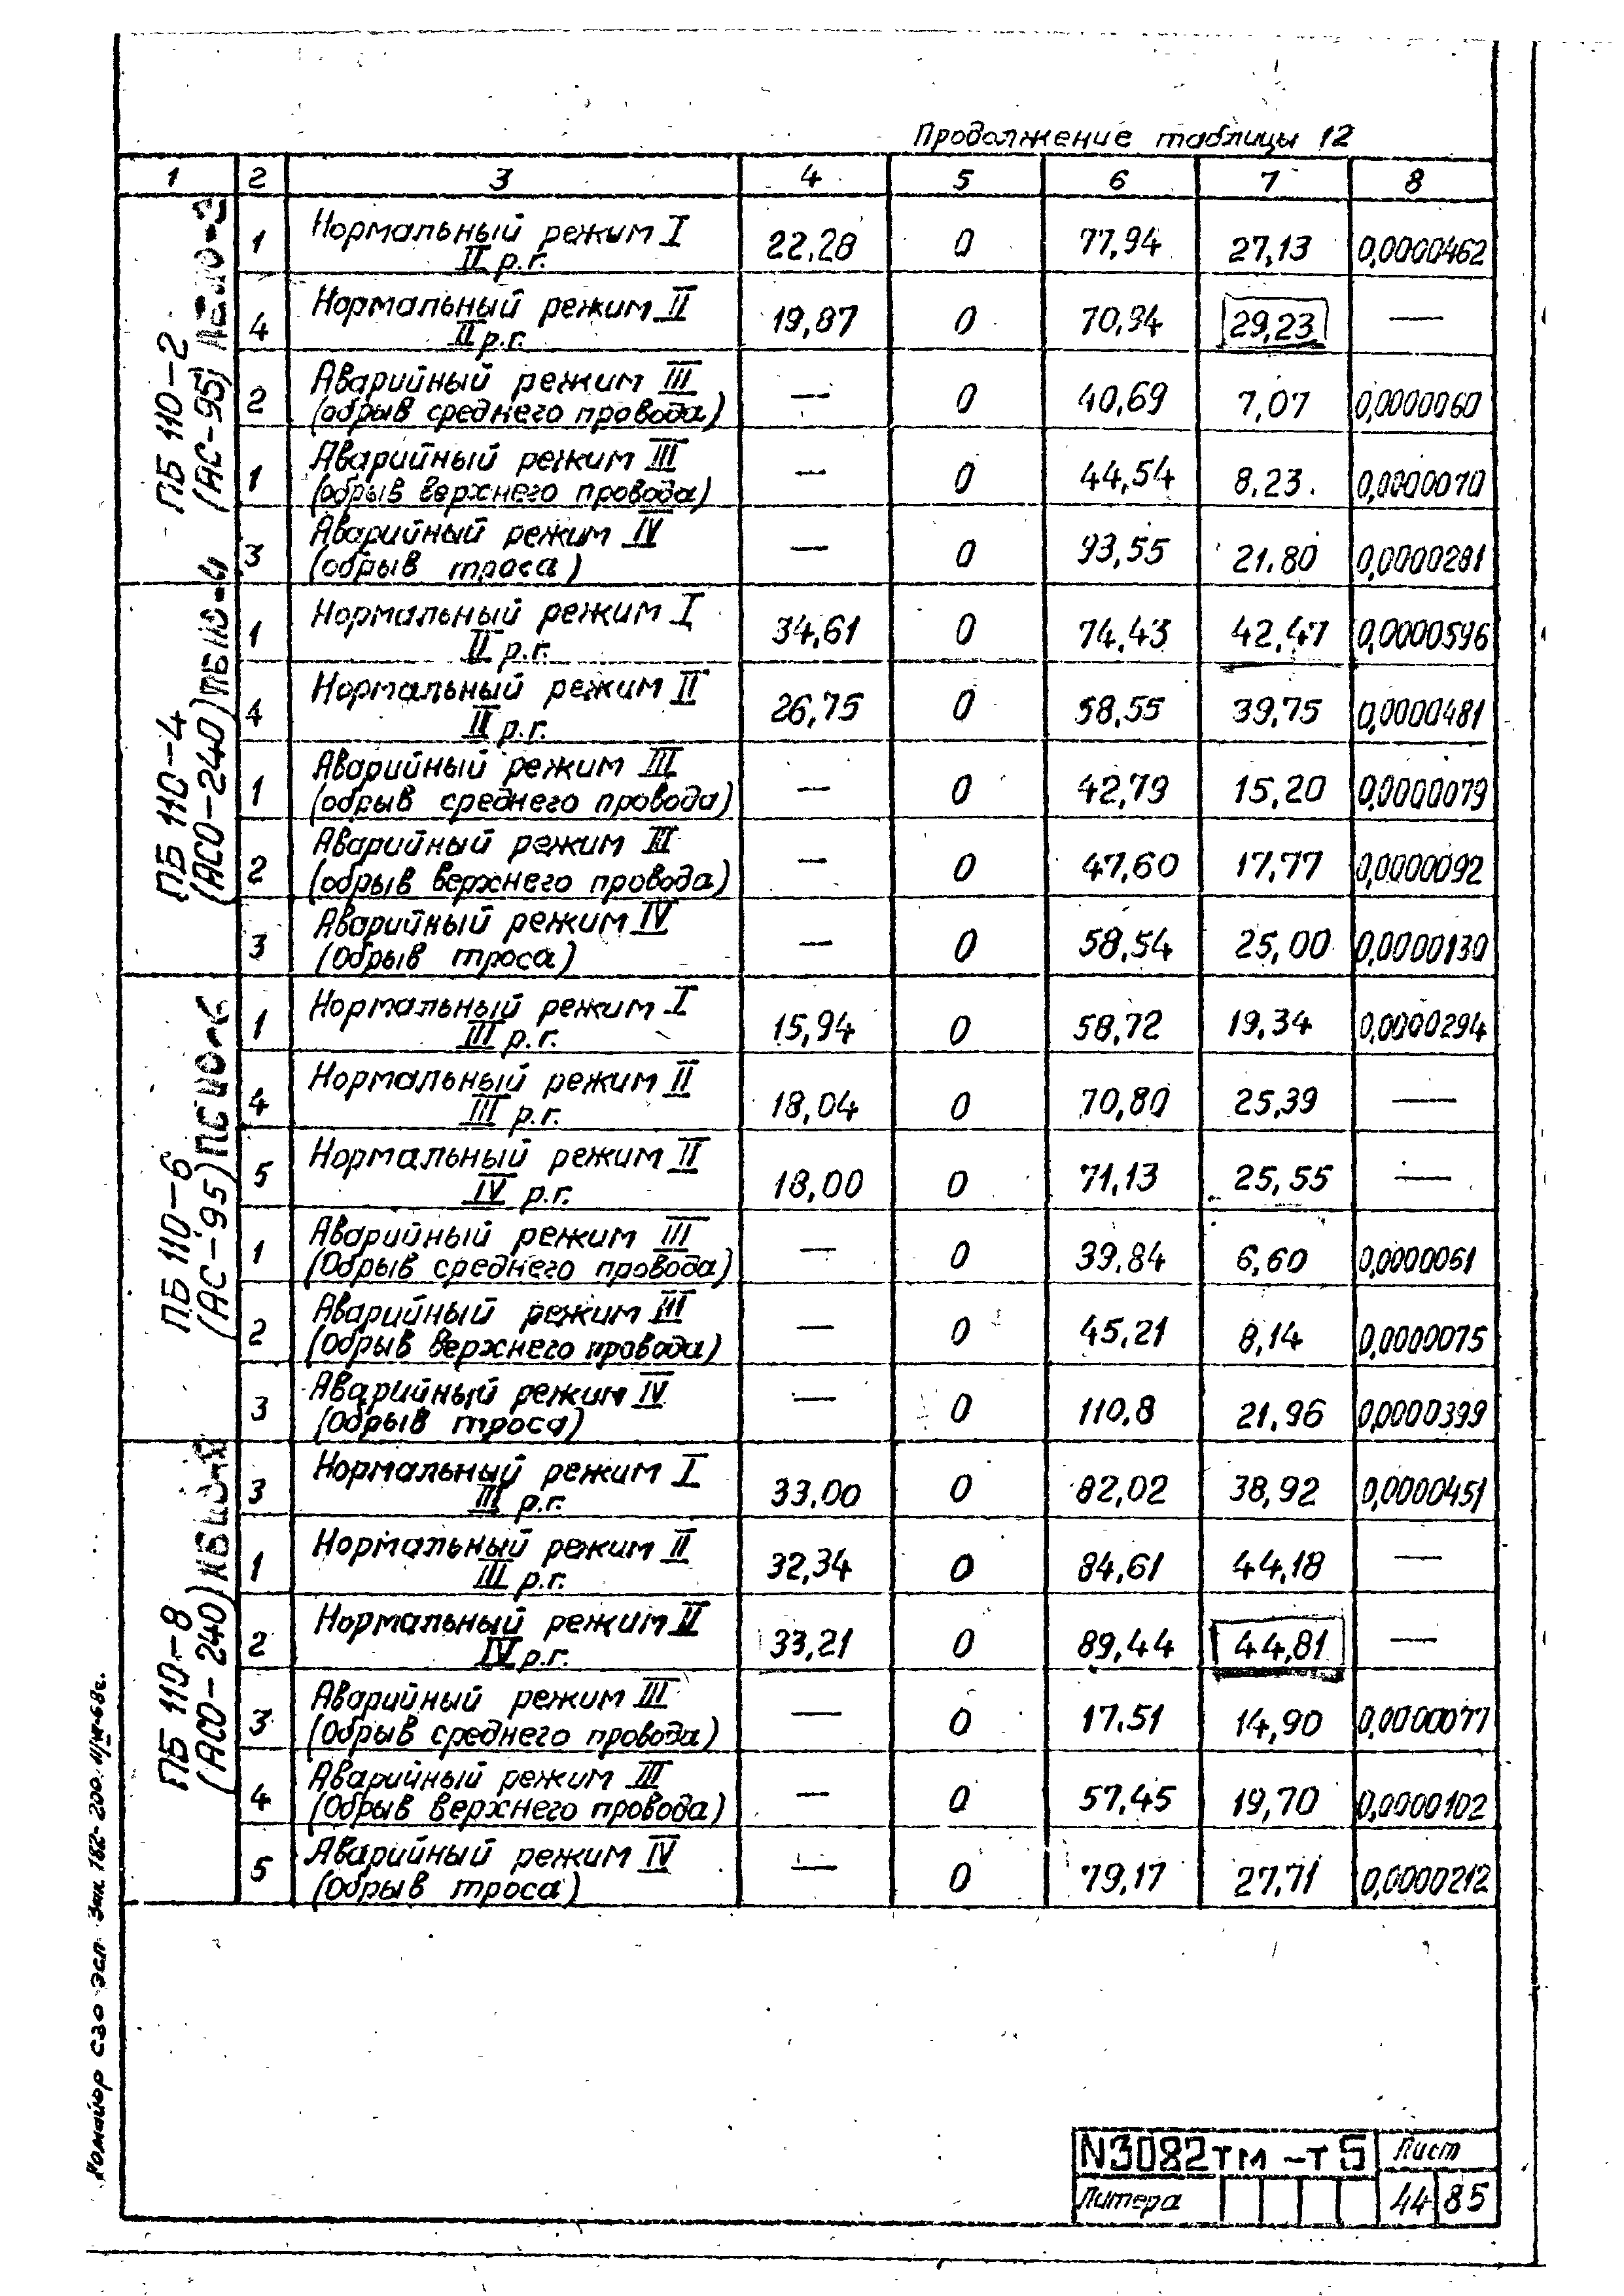 Продолжение таблицы 12
1 2 3 4 5 6 7 8
ПБ 110-2
(АС-95)
1 Нормальный режим I 22,28 0 77,94 27,13 0,0000462
II р.г.
4 Нормальный режим II 19,87 0 70,94 29,23 —
II р.г.
2 Аварийный режим III — 0 40,69 7,07 0,0000060
(обрыв среднего провода)
1 Аварийный режим III — 0 44,54 8,23 0,0000070
(обрыв верхнего провода)
3 Аварийный режим IV — 0 93,55 21,80 0,0000281
(обрыв троса)
ПБ 110-4
(АСО-240) ПБ110-4
1 Нормальный режим I 34,61 0 74,43 42,47 0,0000596
II р.г.
4 Нормальный режим II 26,75 0 58,55 39,75 0,0000481
II р.г.
1 Аварийный режим III — 0 42,79 15,20 0,0000079
(обрыв среднего провода)
2 Аварийный режим III — 0 47,60 17,77 0,0000092
(обрыв верхнего провода)
3 Аварийный режим IV — 0 58,54 25,00 0,0000130
(Обрыв троса)
ПБ 110-6
(АС-95)
1 Нормальный режим I 15,94 0 58,72 19,34 0,0000294
III р.г.
4 Нормальный режим II 18,04 0 70,80 25,39 —
III р.г.
5 Нормальный режим II 18,00 0 71,13 25,55 —
IV р.г.
1 Аварийный режим III — 0 39,84 6,60 0,0000061
(Обрыв среднего провода)
2 Аварийный режим III — 0 45,21 8,14 0,0000075
(Обрыв верхнего провода)
3 Аварийный режим IV — 0 110,8 21,96 0,0000399
(Обрыв троса)
ПБ 110-8
(АСО-240)
3 Нормальный режим I 33,00 0 82,02 38,92 0,0000451
III р.г.
1 Нормальный режим II 32,34 0 84,61 44,18 —
III р.г.
2 Нормальный режим II 33,21 0 89,44 44,81 —
IV р.г.
3 Аварийный режим III — 0 17,51 14,90 0,0000077
(Обрыв среднего провода)
4 Аварийный режим III — 0 57,45 19,70 0,0000102
(Обрыв верхнего провода)
5 Аварийный режим IV — 0 79,17 27,71 0,0000212
(Обрыв троса)
СЗО ЭСП Зак. 182-200
N3082тм-т5 Лист
Литера 44 85